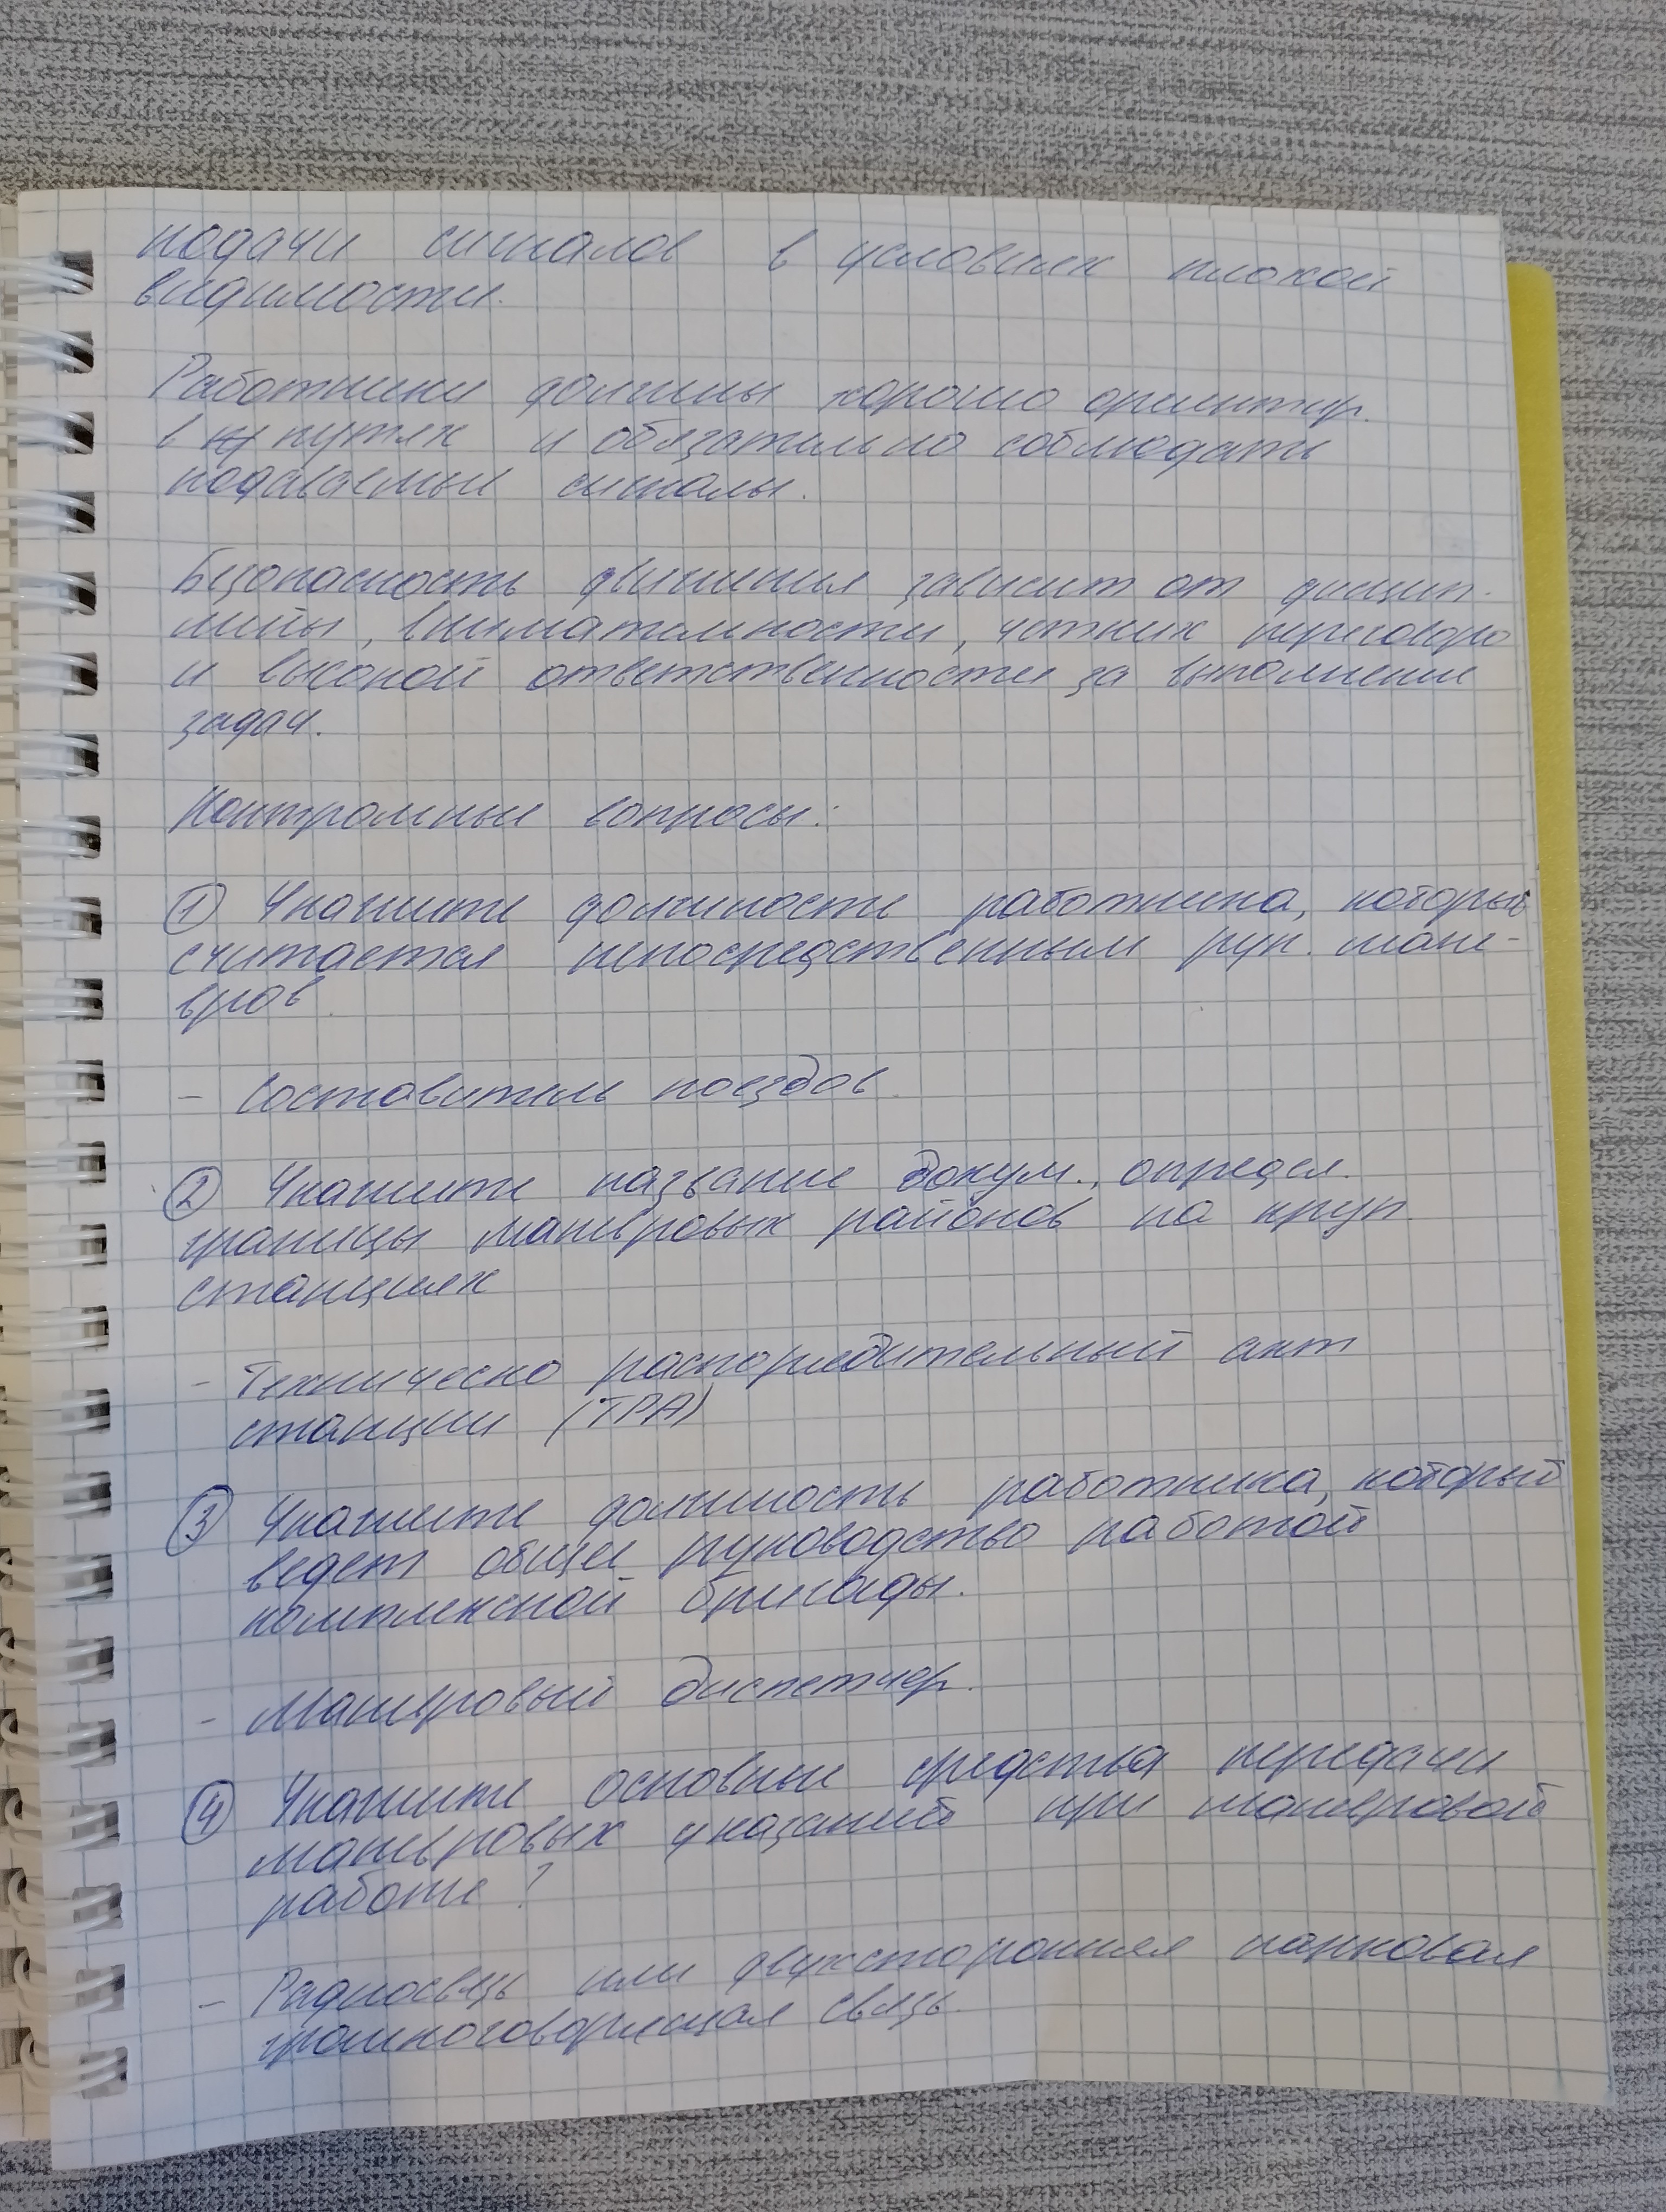 подачи сигналов в условиях плохой
видимости.
Работники должны хорошо ориентир.
в путях и обязательно соблюдать
подаваемые сигналы.
Безопасность движения зависит от дисцип-
лины, внимательности, четких переговоро
и высокой ответственности за выполнение
задач.
Контрольные вопросы:
① Укажите должность работника, который
считается непосредственным рук. мане-
вров
- Составитель поездов.
② Укажите название докум., определ.
границы маневровых районов на круп.
станциях
- Техническо распорядительный акт
станции (ТРА)
③ Укажите должность работника, который
ведет общее руководство работой
комплексной бригады.
- Маневровый диспетчер.
④ Укажите основные средства передачи
маневровых указаний при маневровой
работе?
- Радиосвязь или двухсторонняя парковая
громкоговорящая связь.